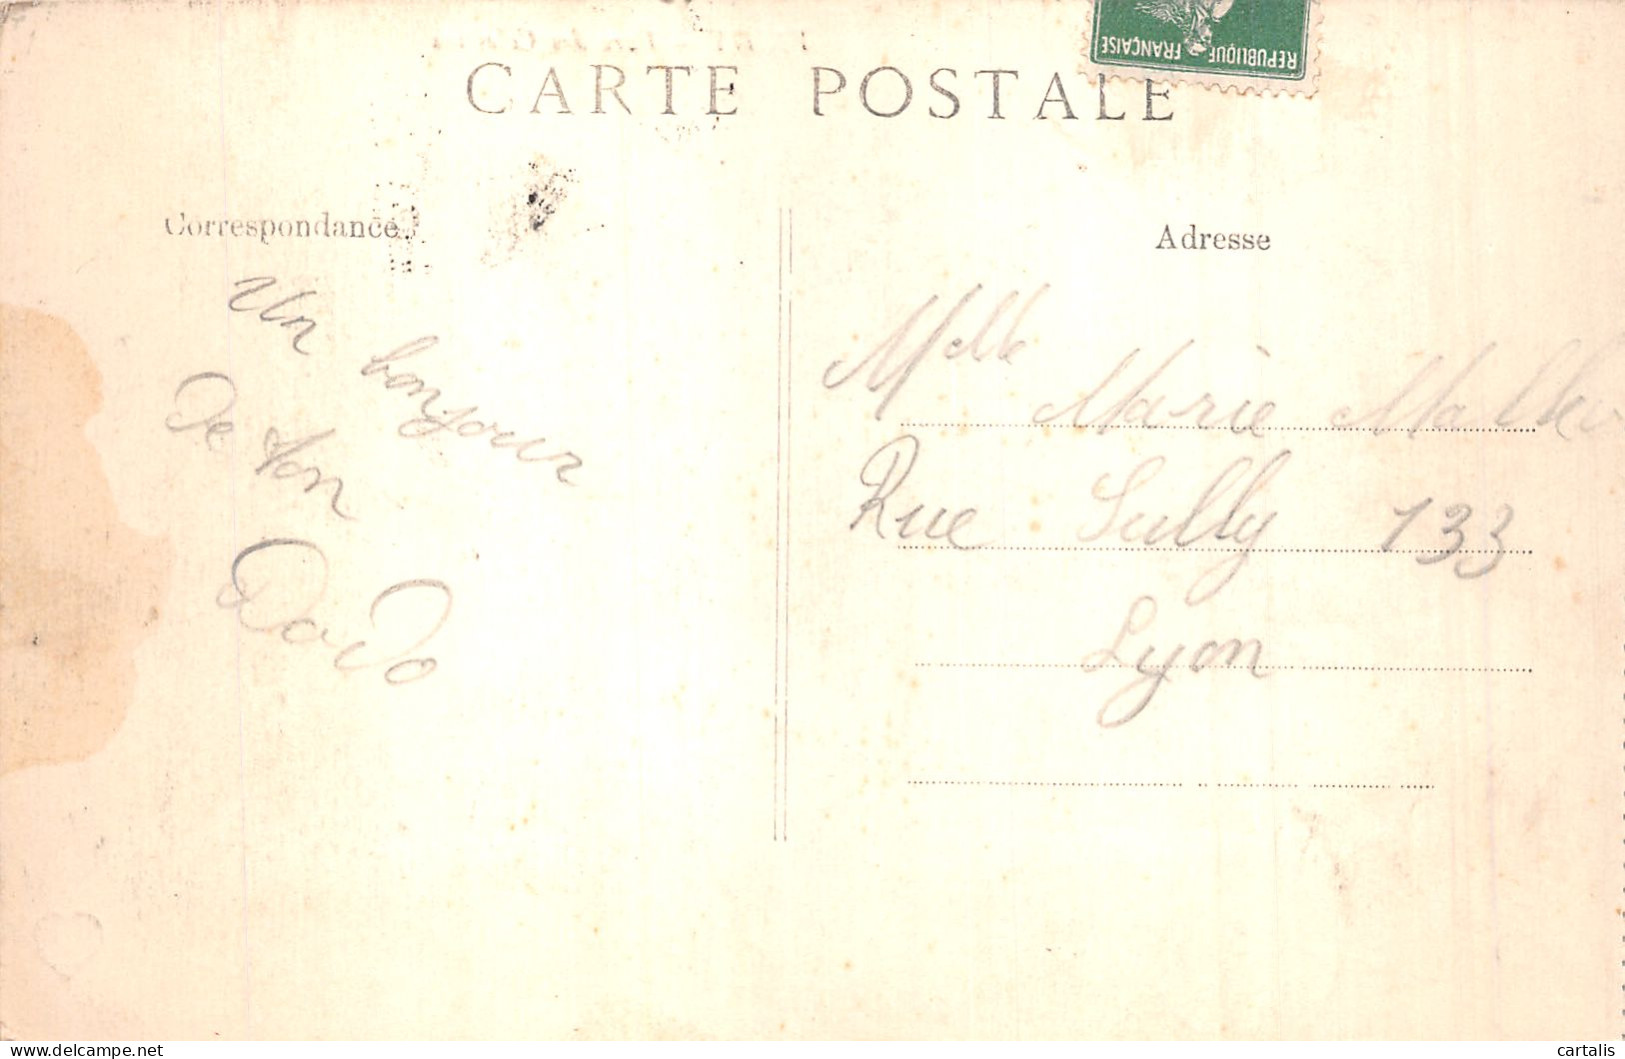 REPUBLIQUE FRANÇAISE
CARTE POSTALE
Correspondance
Adresse
Un bonjour
De ton
Dodo
Melle Marie
Rue Sully 133
Lyon
www.delcampe.net
cartalis